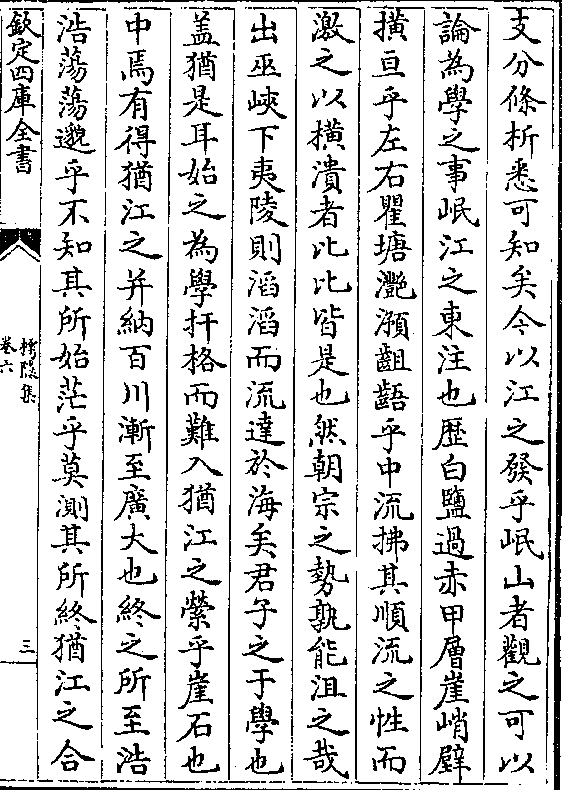 支分條析悉可知矣今以江之發乎岷山者觀之可以
論為學之事岷江之東注也歴白鹽過赤甲層崖峭壁
横亘乎左右瞿塘灔澦齟齬乎中流拂其順流之性而
激之以横潰者比比皆是也然朝宗之勢孰能沮之哉
出巫峽下夷陵則滔滔而流達於海矣君子之于學也
盖猶是耳始之為學扞格而難入猶江之縈乎崖石也
中焉有得猶江之并納百川漸至廣大也終之所至浩
浩蕩蕩邈乎不知其所始茫乎莫測其所終猶江之合
欽定四庫全書
集
卷六
三